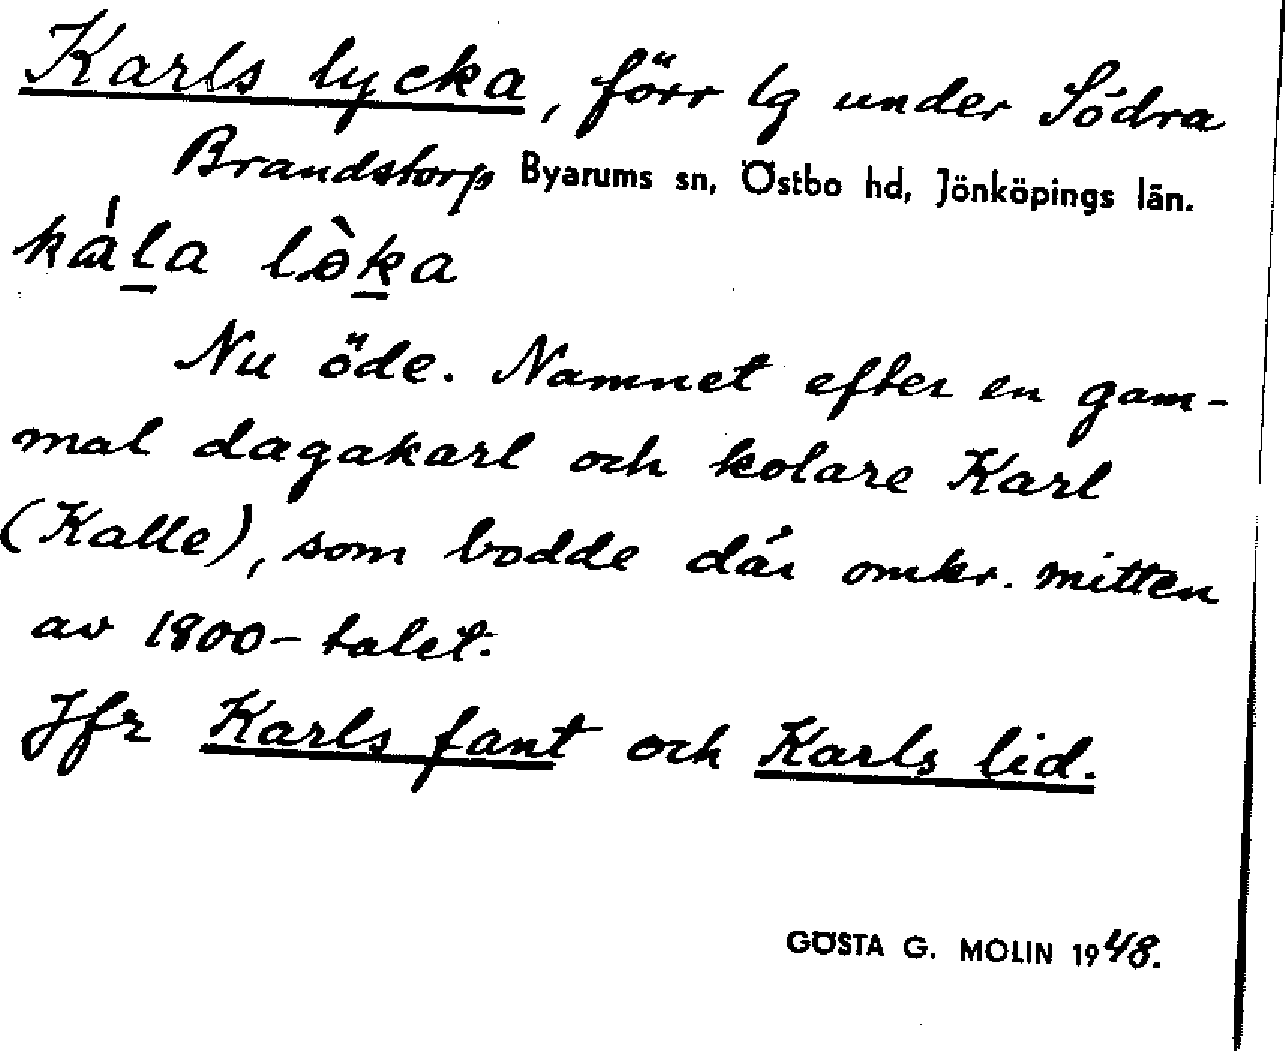 Karls lycka, förr lg under Södra
Brandstorp Byarums sn, Östbo hd, Jönköpings län.
Nu öde. Namnet efter en gam-
mal dagakarl och kolare Karl
(Kalle), som bodde där omkr. mitten
av 1800-talet.
Jfr Karls fant och Karls lid.
GÖSTA G. MOLIN 1948.